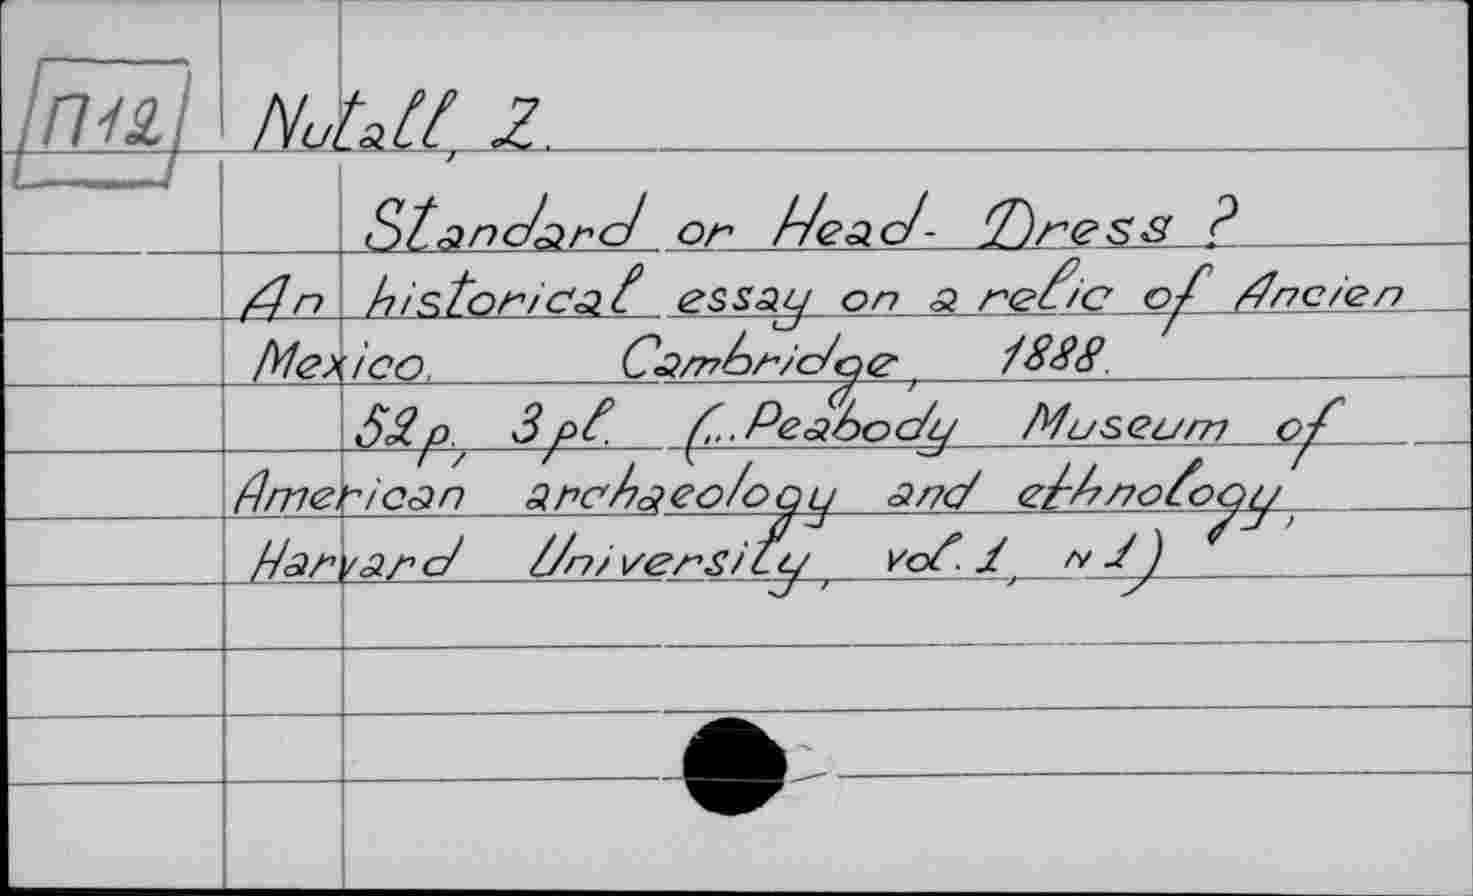 П12
Nutall, Z.
Standard or Head- Dress ?
An historical essay on a relic of Ancien
Mexico. Cambridge, 1888.
52p., 3pl. (,,.Peabody Museum of
American archaeology and ethnology,
Harvard University, vol. 1, N 1)